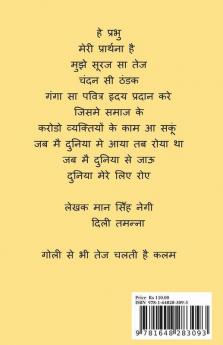 हे प्रभु
मेरी प्रार्थना है
मुझे सूरज सा तेज
चंदन सी ठंडक
गंगा सा पवित्र हृदय प्रदान करे
जिसमे समाज के
करोडो व्यक्तियों के काम आ सकूं
जब मै दुनिया मे आया तब रोया था
जब मै दुनिया से जाऊ
दुनिया मेरे लिए रोए
लेखक मान सिंह नेगी
दिली तमन्ना
गोली से भी तेज चलती है कलम
Price: Rs 110.00
ISBN: 978-1-64828-309-3
9 781648 283093